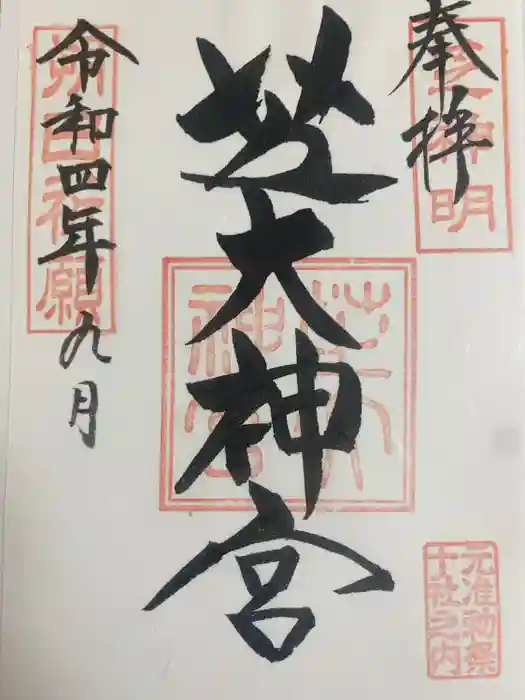 奉拝
芝神明
芝大神宮
芝大神宮
元准勅祭
十社之内
令和四年九月